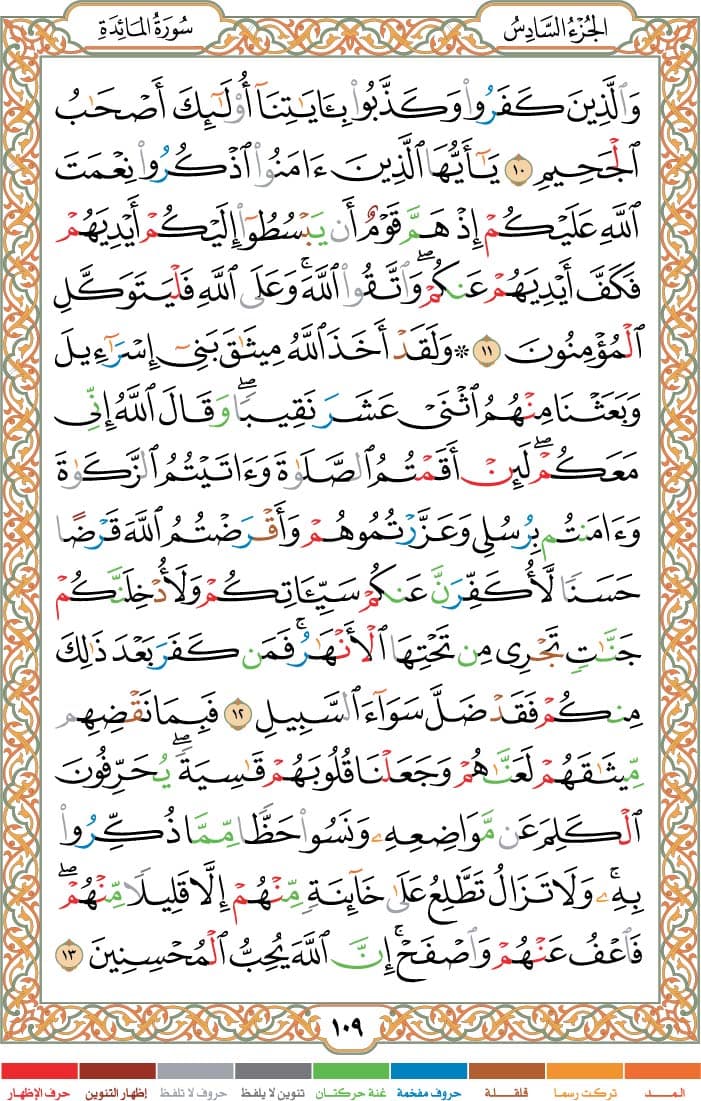 الجُزْءُ السَّادِسُ
سُورَةُ المَائِدَةِ
وَٱلَّذِينَ كَفَرُوا۟ وَكَذَّبُوا۟ بِـَٔايَـٰتِنَآ أُو۟لَـٰٓئِكَ أَصْحَـٰبُ
ٱلْجَحِيمِ ١٠ يَـٰٓأَيُّهَا ٱلَّذِينَ ءَامَنُوا۟ ٱذْكُرُوا۟ نِعْمَتَ
ٱللَّهِ عَلَيْكُمْ إِذْ هَمَّ قَوْمٌ أَن يَبْسُطُوٓا۟ إِلَيْكُمْ أَيْدِيَهُمْ
فَكَفَّ أَيْدِيَهُمْ عَنكُمْ ۖ وَٱتَّقُوا۟ ٱللَّهَ ۚ وَعَلَى ٱللَّهِ فَلْيَتَوَكَّلِ
ٱلْمُؤْمِنُونَ ١١ ۞ وَلَقَدْ أَخَذَ ٱللَّهُ مِيثَـٰقَ بَنِىٓ إِسْرَٰٓءِيلَ
وَبَعَثْنَا مِنْهُمُ ٱثْنَىْ عَشَرَ نَقِيبًا ۖ وَقَالَ ٱللَّهُ إِنِّى
مَعَكُمْ ۖ لَئِنْ أَقَمْتُمُ ٱلصَّلَوٰةَ وَءَاتَيْتُمُ ٱلزَّكَوٰةَ
وَءَامَنتُم بِرُسُلِى وَعَزَّرْتُمُوهُمْ وَأَقْرَضْتُمُ ٱللَّهَ قَرْضًا
حَسَنًا لَّأُكَفِّرَنَّ عَنكُمْ سَيِّـَٔاتِكُمْ وَلَأُدْخِلَنَّكُمْ
جَنَّـٰتٍ تَجْرِى مِن تَحْتِهَا ٱلْأَنْهَـٰرُ ۚ فَمَن كَفَرَ بَعْدَ ذَٰلِكَ
مِنكُمْ فَقَدْ ضَلَّ سَوَآءَ ٱلسَّبِيلِ ١٢ فَبِمَا نَقْضِهِم
مِّيثَـٰقَهُمْ لَعَنَّـٰهُمْ وَجَعَلْنَا قُلُوبَهُمْ قَـٰسِيَةً ۖ يُحَرِّفُونَ
ٱلْكَلِمَ عَن مَّوَاضِعِهِۦ ۙ وَنَسُوا۟ حَظًّا مِّمَّا ذُكِّرُوا۟
بِهِۦ ۚ وَلَا تَزَالُ تَطَّلِعُ عَلَىٰ خَآئِنَةٍ مِّنْهُمْ إِلَّا قَلِيلًا مِّنْهُمْ ۖ
فَٱعْفُ عَنْهُمْ وَٱصْفَحْ ۚ إِنَّ ٱللَّهَ يُحِبُّ ٱلْمُحْسِنِينَ ١٣
١٠٩
المـــد تركت رسما قلقلة حروف مفخمة غنة حركتان تنوين لا يلفظ حروف لا تلفظ إظهار التنوين حرف الإظهار